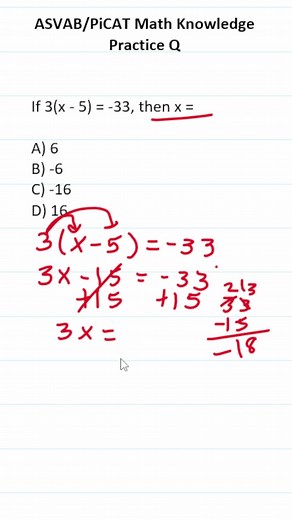 ASVAB/PiCAT Math Knowledge
Practice Q
If 3(x - 5) = -33, then x =
A) 6
B) -6
C) -16
D) 16
3(x-5) = -33
3x - 15 = -33
+15 +15
3x =
213
33
-15
-18